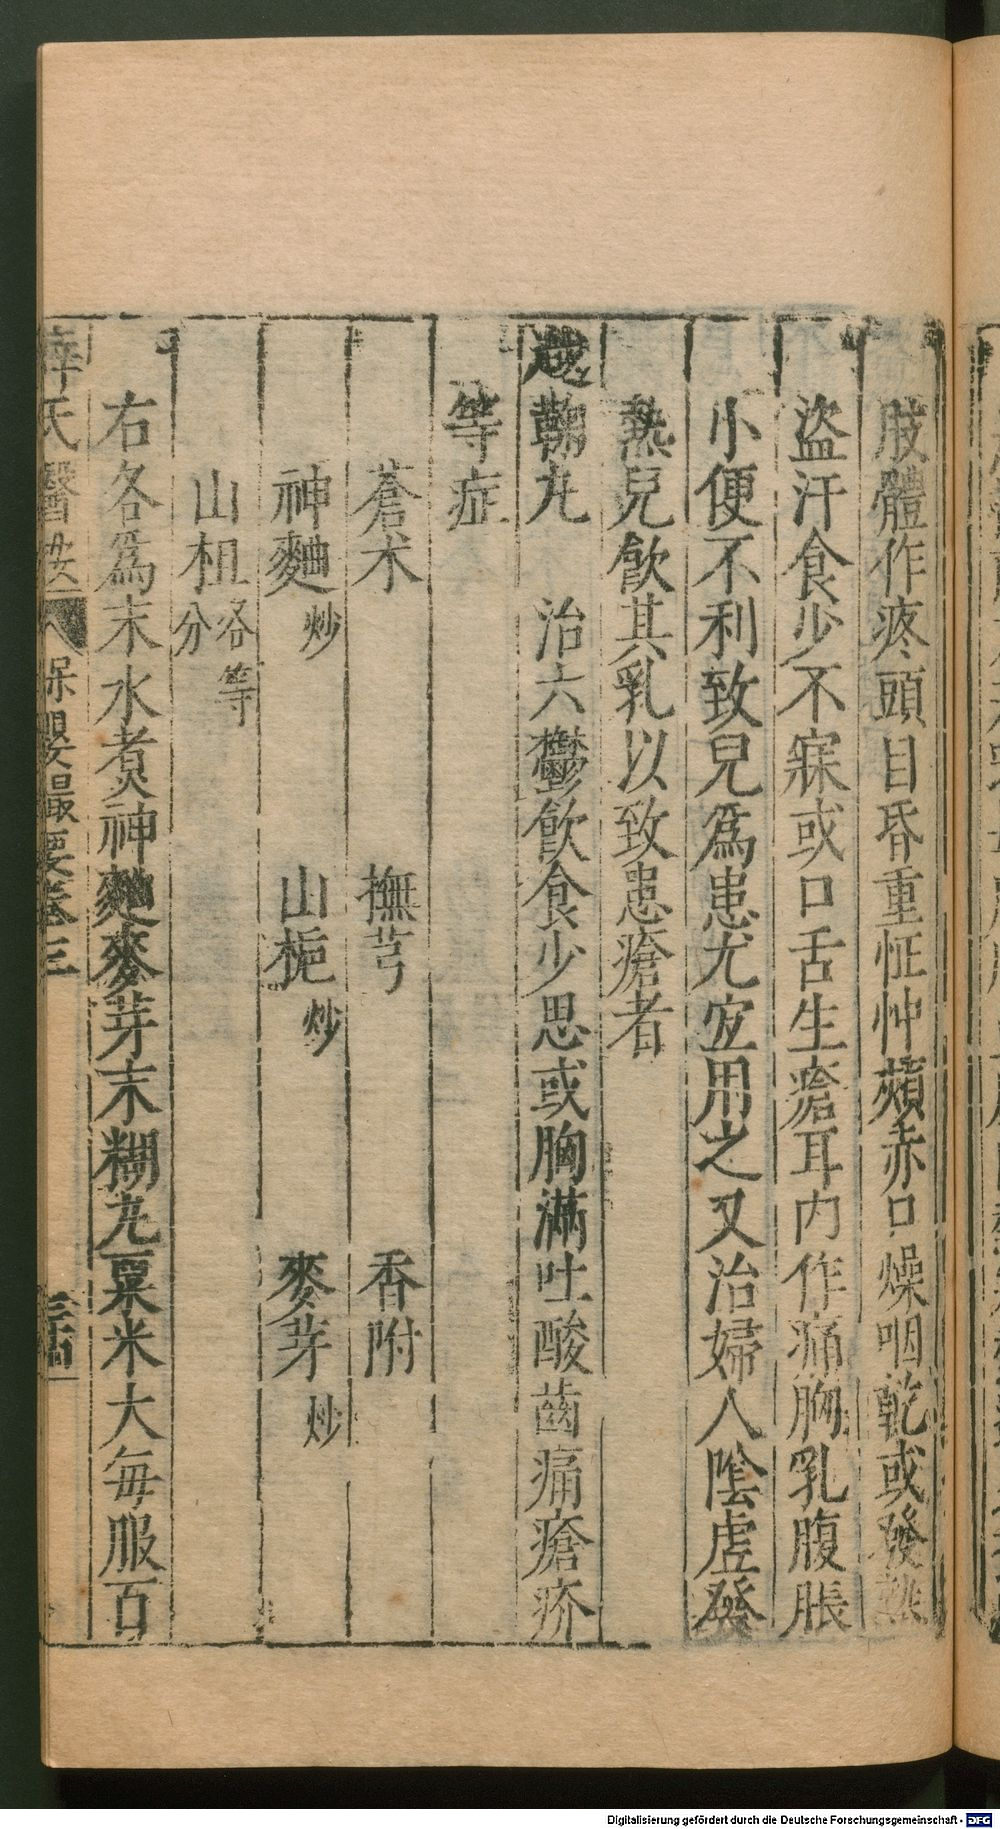 肢體作疼頭目昏重怔忡頰赤口燥咽乾或發熱
盜汗食少不寐或口舌生瘡耳内作痛胸乳腹脹
小便不利致兒爲患尤宜用之又治婦人陰虛發
熱兒飲其乳以致患瘡者
越鞠丸　治六鬱飲食少思或胸滿吐酸齒痛瘡疥
等症
蒼术　撫芎　香附
神麯炒　山梔炒　麥芽炒
山柤各等分
右各爲末水煮神麯麥芽末糊丸粟米大每服百
薛氏醫按　保嬰撮要卷三　三
Digitalisierung gefördert durch die Deutsche Forschungsgemeinschaft - DFG